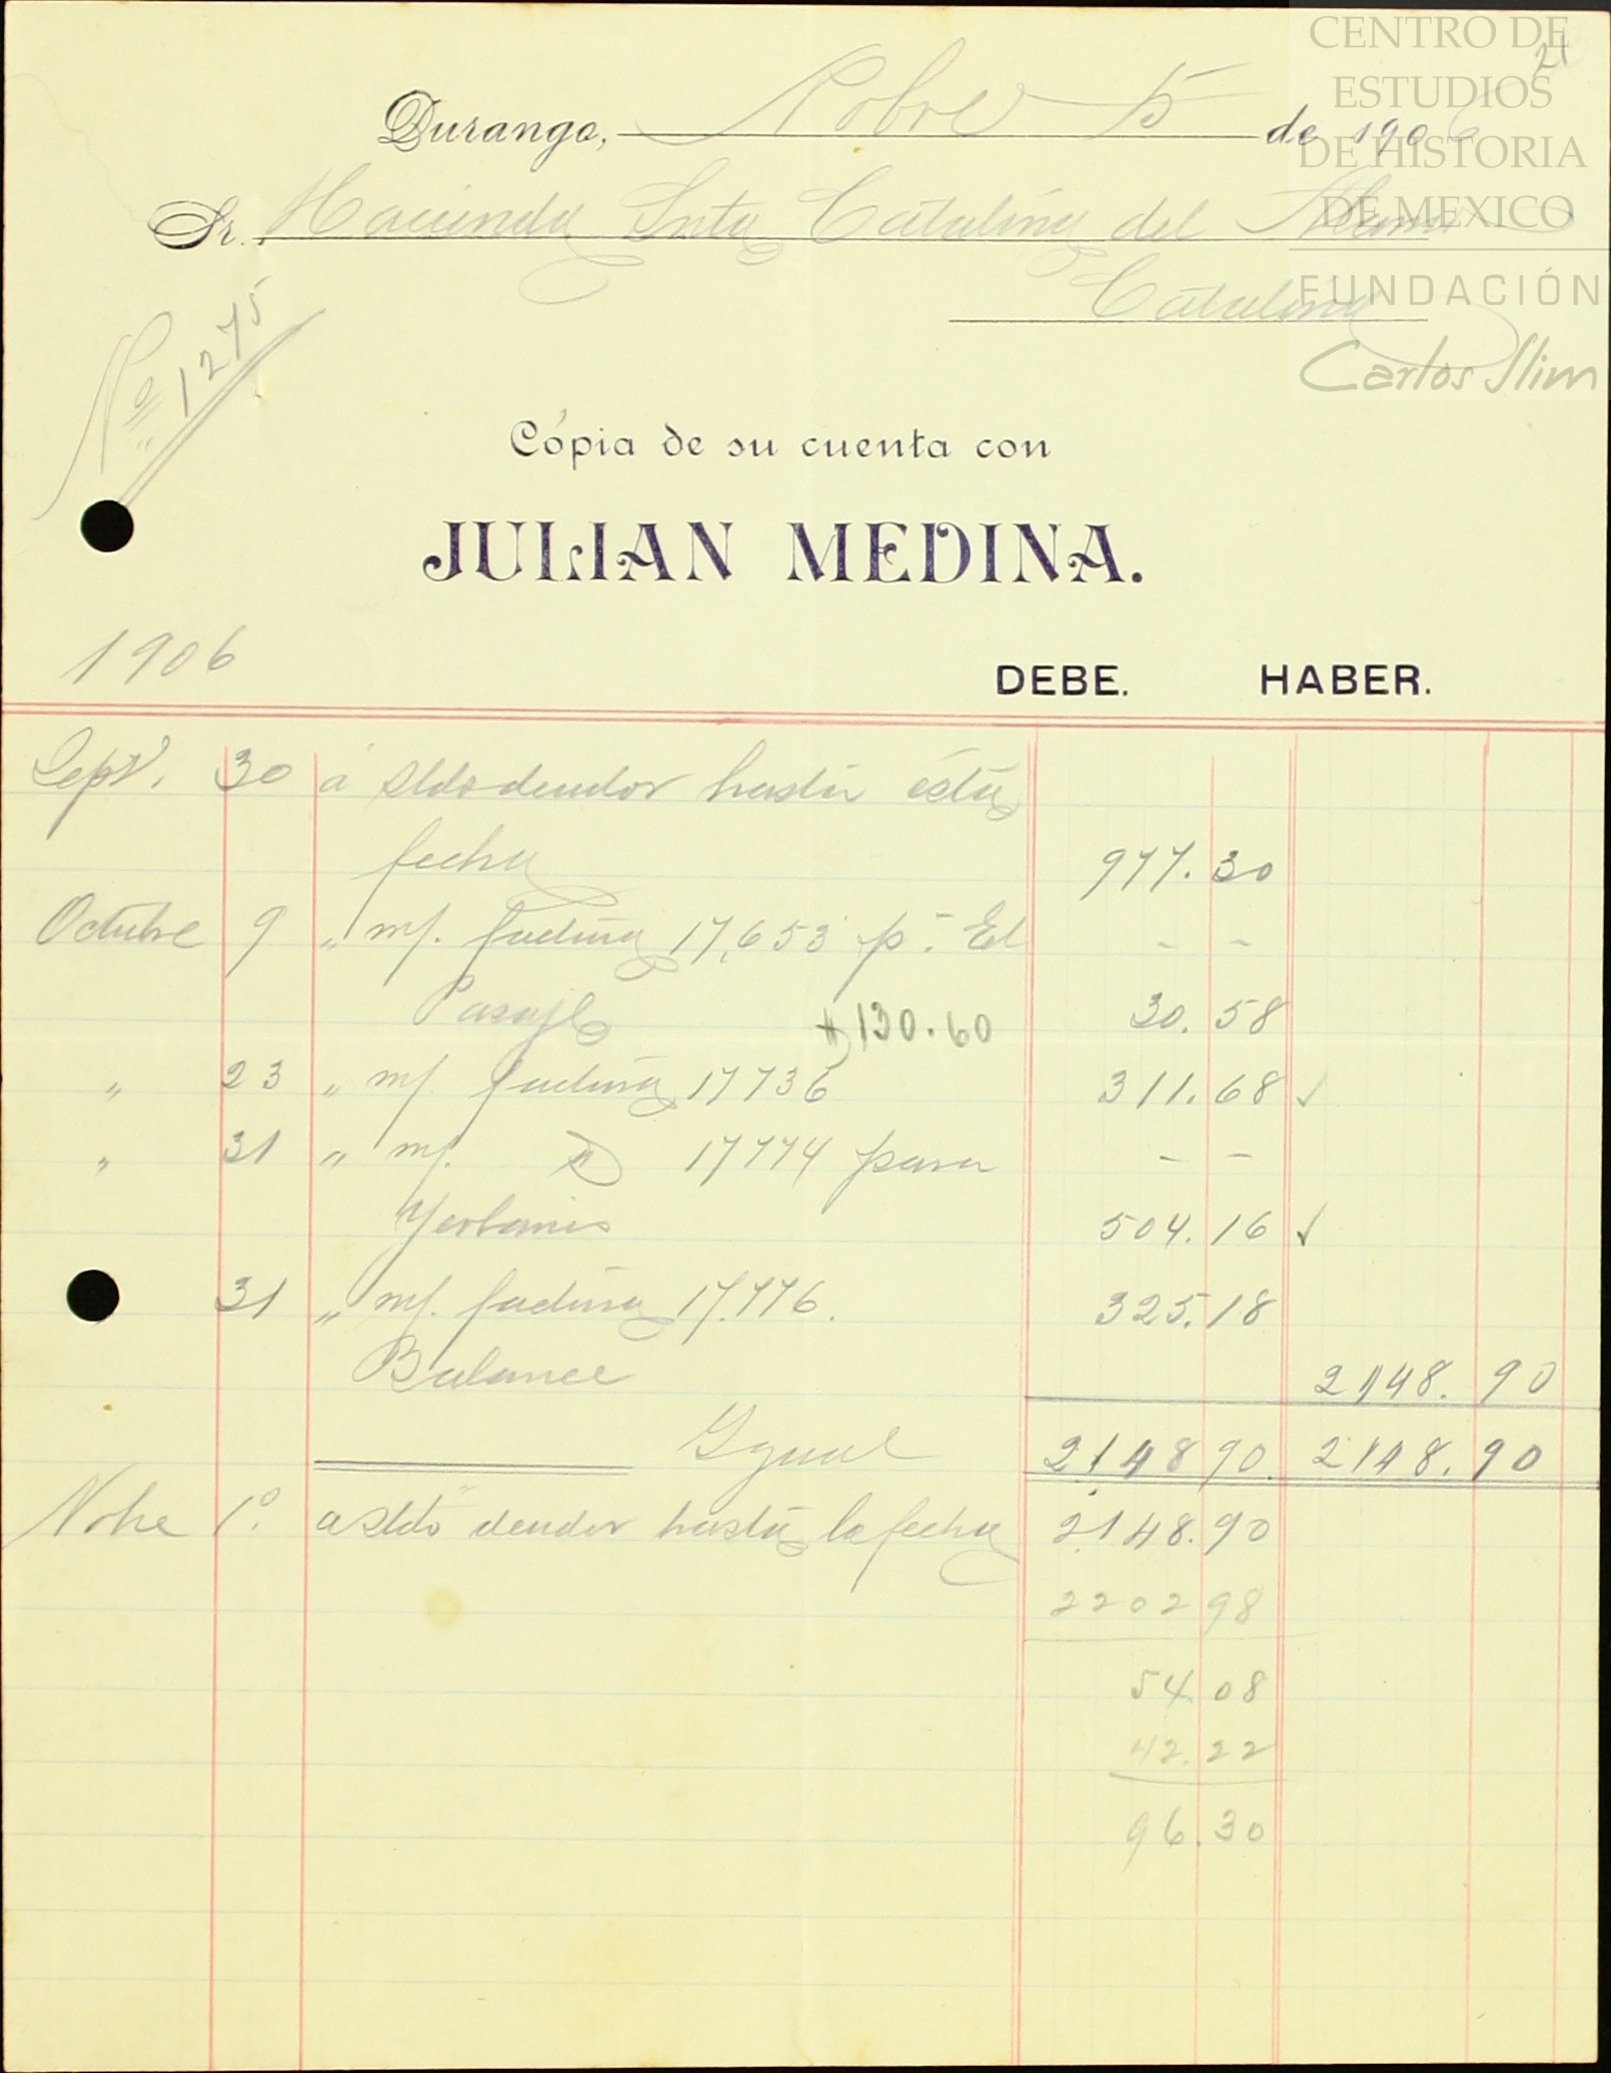 CENTRO DE
ESTUDIOS
DE HISTORIA
DE MEXICO
FUNDACIÓN
Carlos Slim
21
Durango, Nobre 5 de 1906
Sr. Hacienda Snta Catalina del Alamo
Catalina
Nº 1275
Cópia de su cuenta con
JULIAN MEDINA.
1906 DEBE. HABER.
Sept. 30 á sldo deudor hasta ésta
fecha 977.30
Octubre 9 " m/. factura 17,653 p. El - -
Pasaje $130.60 30.58
" 23 " m/. factura 17736 311.68 ✓
" 31 " m/. 17774 para - -
Yerbanis 504.16 ✓
" 31 " m/. factura 17.776. 325.18
Balance 2148.90
Ygual 2148 90. 2148.90
Nobe 1º. a sldo deudor hasta la fecha 2148.90
2202 98
54 08
42.22
96.30